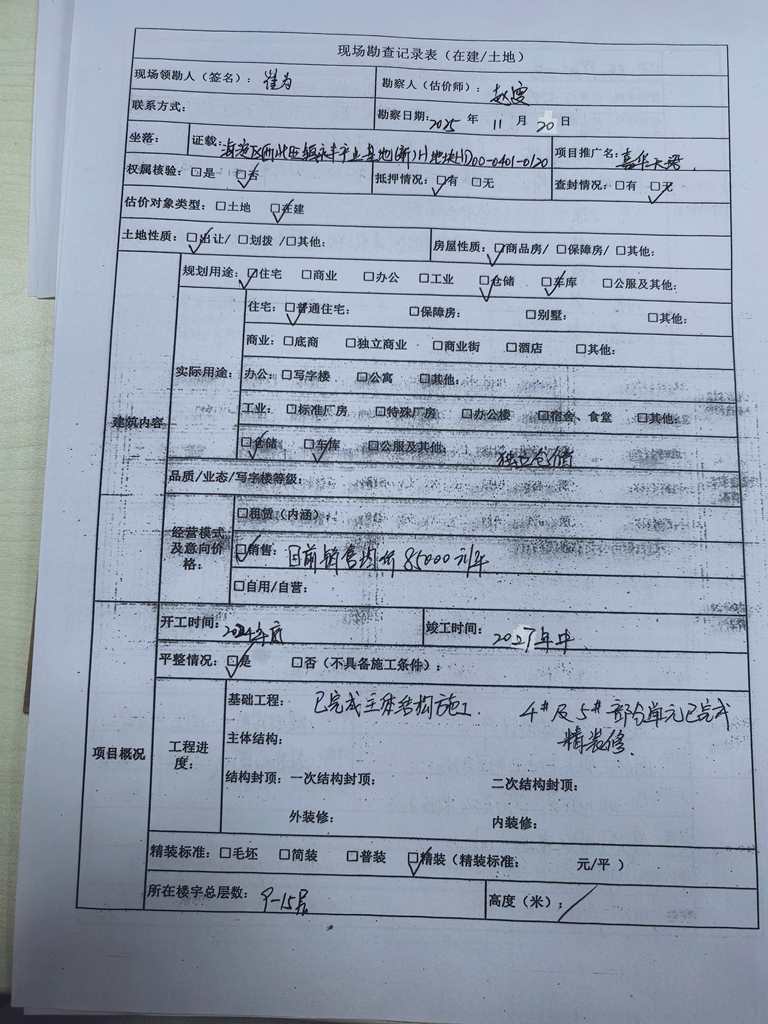 现场勘查记录表（在建/土地）
现场领勘人（签名）：崔为 勘察人（估价师）：
联系方式： 勘察日期：2025 年 11 月 20 日
坐落： 证载：海淀区西北旺镇永丰产业基地(新)H地块HD00-0401-0120 项目推广名：嘉华天珺
权属核验：□是 ☑否 抵押情况：☑有 □无 查封情况：□有 ☑无
估价对象类型：□土地 ☑在建
土地性质：☑出让/ □划拨 /□其他： 房屋性质：☑商品房/ □保障房/ □其他：
建筑内容
规划用途：☑住宅 □商业 □办公 □工业 ☑仓储 ☑车库 □公服及其他：
实际用途：
住宅：☑普通住宅： □保障房： □别墅： □其他：
商业：□底商 □独立商业 □商业街 □酒店 □其他：
办公：□写字楼 □公寓 □其他：
工业：□标准厂房 □特殊厂房 □办公楼 □宿舍、食堂 □其他：
☑仓储 ☑车库 □公服及其他： 独立仓储
品质/业态/写字楼等级：
经营模式及意向价格：
□租赁（内涵）：
☑销售：目前销售均价85000元/平
□自用/自营：
项目概况
开工时间：2024年底 竣工时间：2027年中
平整情况：☑是 □否（不具备施工条件）：
工程进度：
基础工程：已完成主体结构施工. 4#及5#部分单元已完成
精装修.
主体结构：
结构封顶：一次结构封顶： 二次结构封顶：
外装修： 内装修：
精装标准：□毛坯 □简装 □普装 ☑精装（精装标准： 元/平 ）
所在楼宇总层数：9-15层 高度（米）：/